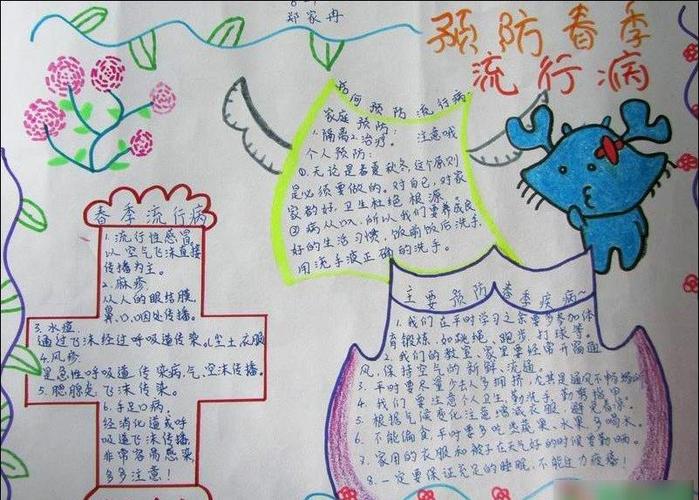 郑家冉
预防春季
流行病
春季流行病
1.流行性感冒
以空气飞沫直接
传播为主。
2.麻疹
从人的眼结膜
鼻、口、咽处传播。
3.水痘
通过飞沫经过呼吸道传染
尘土衣服
4.风疹
是急性呼吸道传染病气、空沫传播。
5.腮腺炎飞沫传染。
6.手足口病:
经消化道或呼
吸道飞沫传播
非常容易感染
多多注意!
如何预防流行病
家庭预防:
1.隔离2.治疗。注意哦
个人预防:
①.无论是春夏秋冬,这个原则
是必须要做的。对自己,对家
家都好,卫生杜绝根源。
②病从口入,所以我们要养成良
好的生活习惯,饭前饭后洗手
用洗手液正确的洗手。
主要预防春季疾病~
1.我们在平时学习之余要多参加体
育锻炼,如跳绳、跑步、打球等。
2.我们的教室、家里要经常开窗通
风,保持空气的新鲜、流通。
3.平时要尽量少去人多拥挤,尤其是通风不畅
4.我们要注意个人卫生,勤洗手,勤剪指甲
5.根据气候变化注意增减衣服,避免着凉。
6.不能偏食,平时要多吃些蔬菜、水果、多喝水。
7.家用的衣服和被子在天气好的时候要勤晒。
8.一定要保证充足的睡眠,不能过力疲惫!